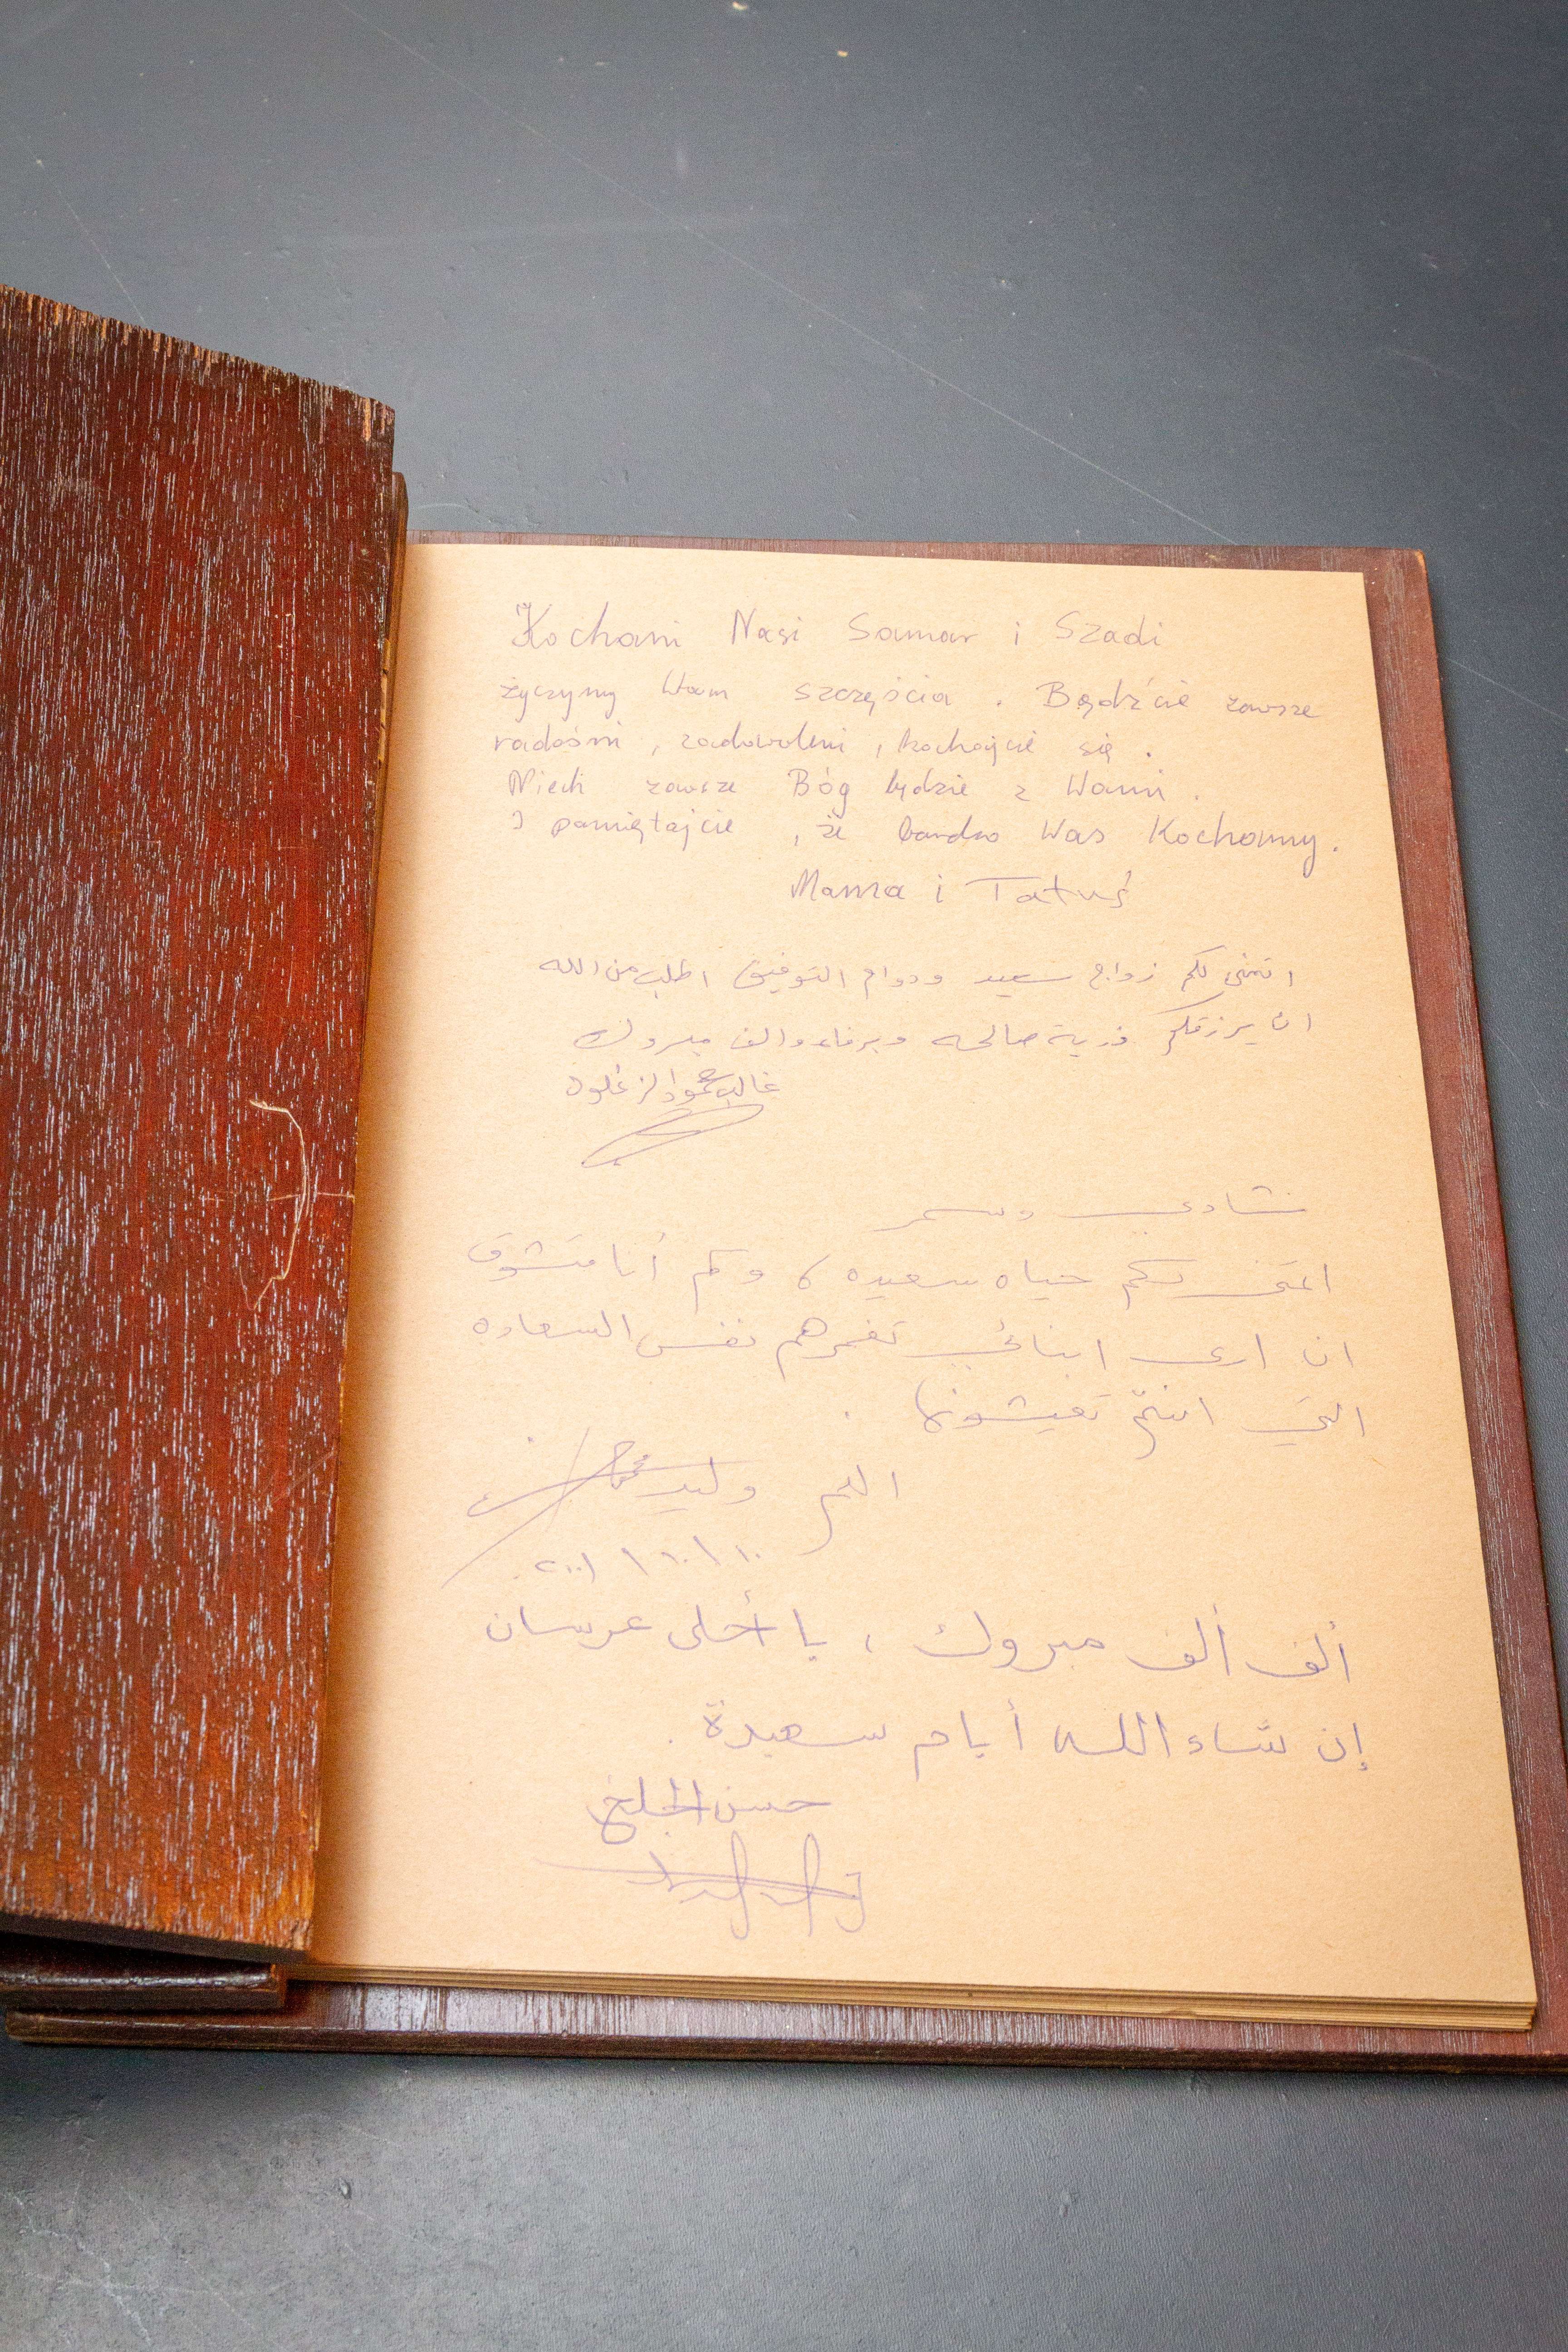 Kochani Nasi Samar i Szadi
życzymy Wam szczęścia . Bądźcie zawsze
radośni , zadowoleni , kochajcie się .
Niech zawsze Bóg będzie z Wami .
I pamiętajcie , że bardzo Was Kochamy .
Mama i Tatuś
اتمنى لكم زواج سعيد ودوام التوفيق اطلب من الله
ان يرزقكم ذرية صالحه وبرفاء والف مبروك
غالب محمود
شادي وسمر
اتمنى لكم حياه سعيده ، وكم أنا متشوق
ان ارى ابنائي تغمرهم نفس السعاده
التي انتم تعيشونها .
العم وليد
١٠ \ ١٠ \ ٢٠٠١
ألف ألف مبروك ، يا أحلى عرسان
إن شاء الله أيام سعيدة .
حسن